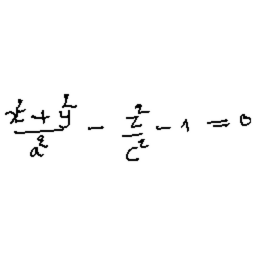 \frac{x^2+y^2}{a^2} - \frac{z^2}{c^2} - 1 = 0